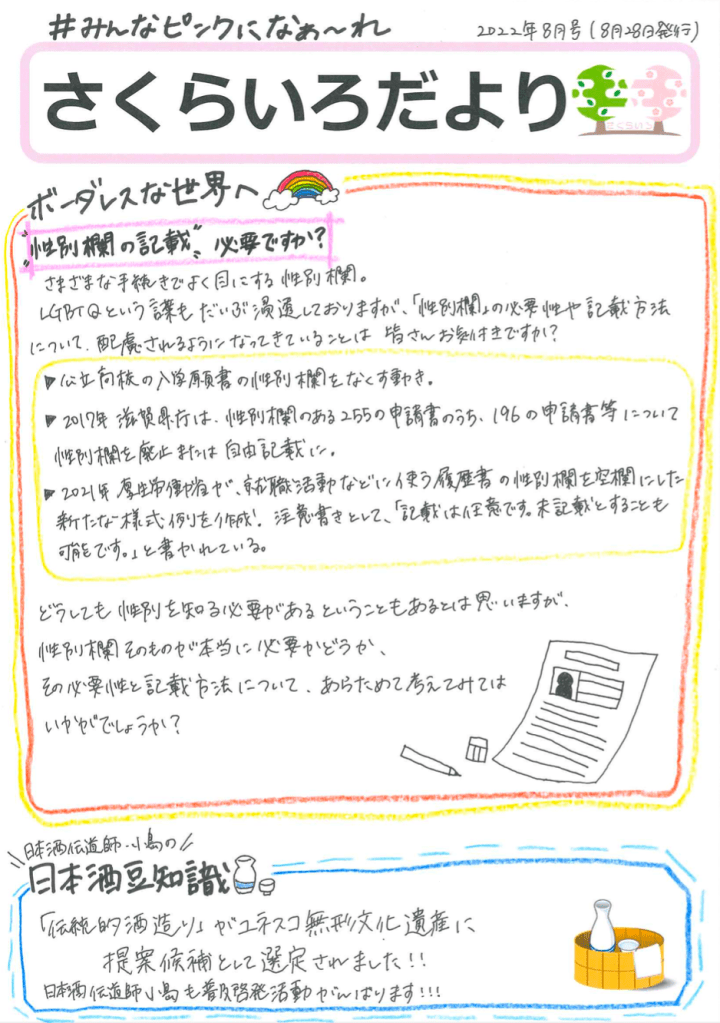 #みんなピンクになぁ〜れ
2022年8月号(8月28日発行)
さくらいろだより
さくらいろ
ボーダレスな世界へ
"性別欄の記載" 必要ですか?
さまざまな手続きでよく目にする性別欄。
LGBTQという言葉もだいぶ浸透しておりますが、「性別欄」の必要性や記載方法
について、配慮されるようになってきていることは皆さんお気付きですか?
▶公立高校の入学願書の性別欄をなくす動き。
▶2017年 滋賀県庁は、性別欄のある255の申請書のうち、196の申請書等について
性別欄を廃止または自由記載に。
▶2021年 厚生労働省が、就職活動などに使う履歴書の性別欄を空欄にした
新たな様式例を作成。注意書きとして、「記載は任意です。未記載とすることも
可能です。」と書かれている。
どうしても性別を知る必要があるということもあるとは思いますが、
性別欄そのものが本当に必要かどうか、
その必要性と記載方法について、あらためて考えてみては
いかがでしょうか?
\日本酒伝道師・小島の/
日本酒豆知識
「伝統的酒造り」がユネスコ無形文化遺産に
提案候補として選定されました!!
日本酒伝道師小島も普及啓発活動がんばります!!!